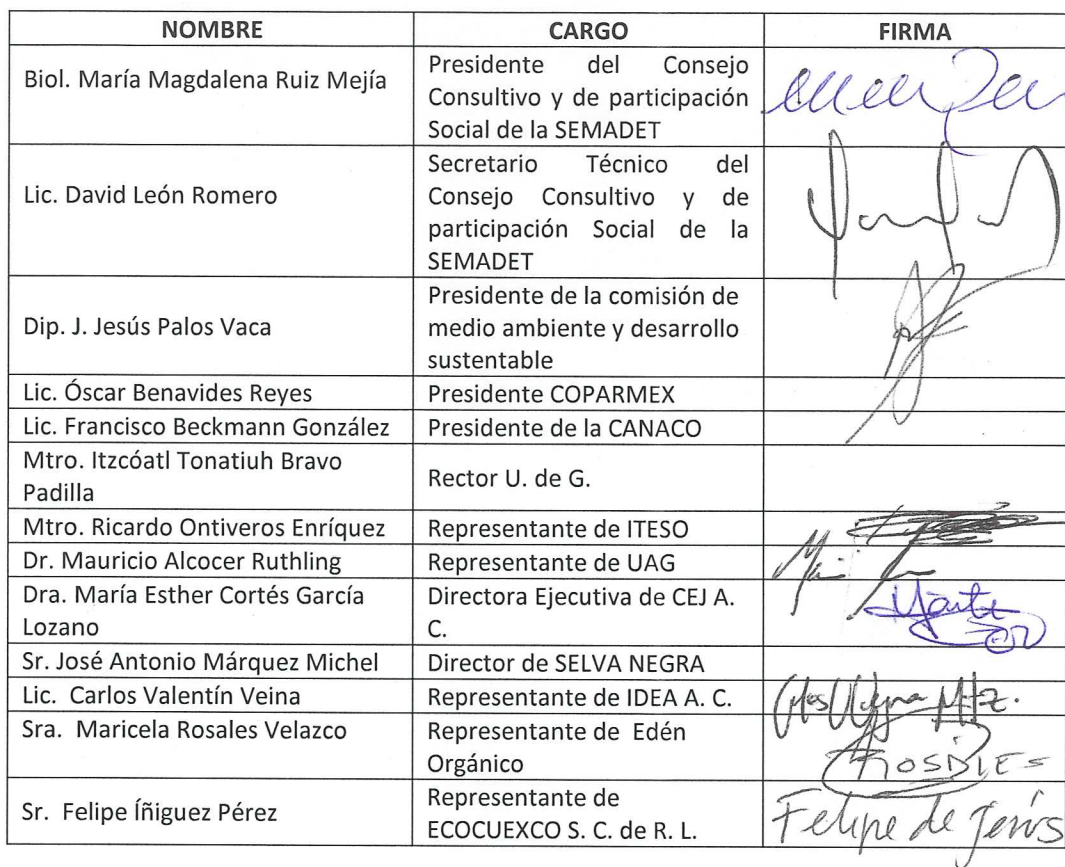 NOMBRE CARGO FIRMA
Biol. María Magdalena Ruiz Mejía
Presidente del Consejo
Consultivo y de participación
Social de la SEMADET
Lic. David León Romero
Secretario Técnico del
Consejo Consultivo y de
participación Social de la
SEMADET
Dip. J. Jesús Palos Vaca
Presidente de la comisión de
medio ambiente y desarrollo
sustentable
Lic. Óscar Benavides Reyes Presidente COPARMEX
Lic. Francisco Beckmann González Presidente de la CANACO
Mtro. Itzcóatl Tonatiuh Bravo
Padilla
Rector U. de G.
Mtro. Ricardo Ontiveros Enríquez Representante de ITESO
Dr. Mauricio Alcocer Ruthling Representante de UAG
Dra. María Esther Cortés García
Lozano
Directora Ejecutiva de CEJ A.
C.
Sr. José Antonio Márquez Michel Director de SELVA NEGRA
Lic. Carlos Valentín Veina Representante de IDEA A. C.
Sra. Maricela Rosales Velazco
Representante de Edén
Orgánico
Sr. Felipe Íñiguez Pérez
Representante de
ECOCUEXCO S. C. de R. L.
Felipe de Jesús